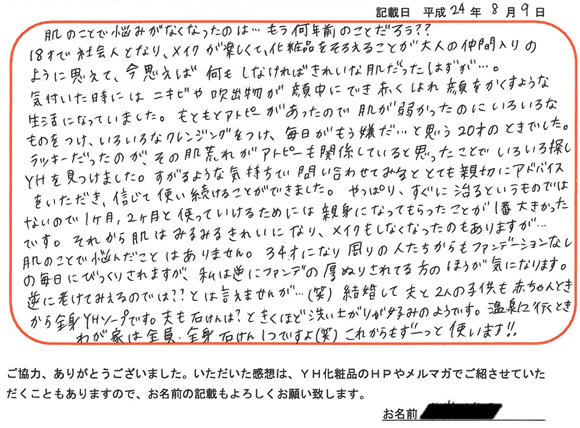 記載日 平成24年8月9日
肌のことで悩みがなくなったのは…もう何年前のことだろう??
18才で社会人となり、メイクが楽しくて、化粧品をそろえることが大人の仲間入りの
ように思えて、今思えば何もしなければきれいな肌だったはずが…。
気付いた時にはニキビや吹出物が顔中にでき赤くはれ顔をかくすような
生活になっていました。もともとアトピーがあったので肌が弱かったのにいろいろな
ものをつけ、いろいろなクレンジングをつけ、毎日がもう嫌だ…と思う20才のときでした。
ラッキーだったのが、その肌荒れがアトピーも関係していると思ったことでいろいろ探し
YHを見つけました。すがるような気持ちで問い合わせてみるととても親切にアドバイス
をいただき、信じて使い続けることができました。やっぱり、すぐに治るというものでは
ないので1ヶ月,2ヶ月と使っていけるためには親身になってもらったことが1番大きかった
です。それから肌はみるみるきれいになり、メイクもしなくなったのもありますが…
肌のことで悩んだことはありません。34才になり周りの人たちからもファンデーションなし
の毎日にびっくりされますが、私は逆にファンデの厚ぬりされてる方のほうが気になります。
逆に老けてみえるのでは??とは言えませんが…(笑) 結婚して夫と2人の子供も赤ちゃんとき
から全身YHソープです。夫も石けんは?ときくほど洗い上がりが好みのようです。温泉に行くとき
わが家は全員・全身石けん1つですよ(笑)これからもずーっと使います!!
ご協力、ありがとうございました。いただいた感想は、YH化粧品のHPやメルマガでご紹させていた
だくこともありますので、お名前の記載もよろしくお願い致します。
お名前